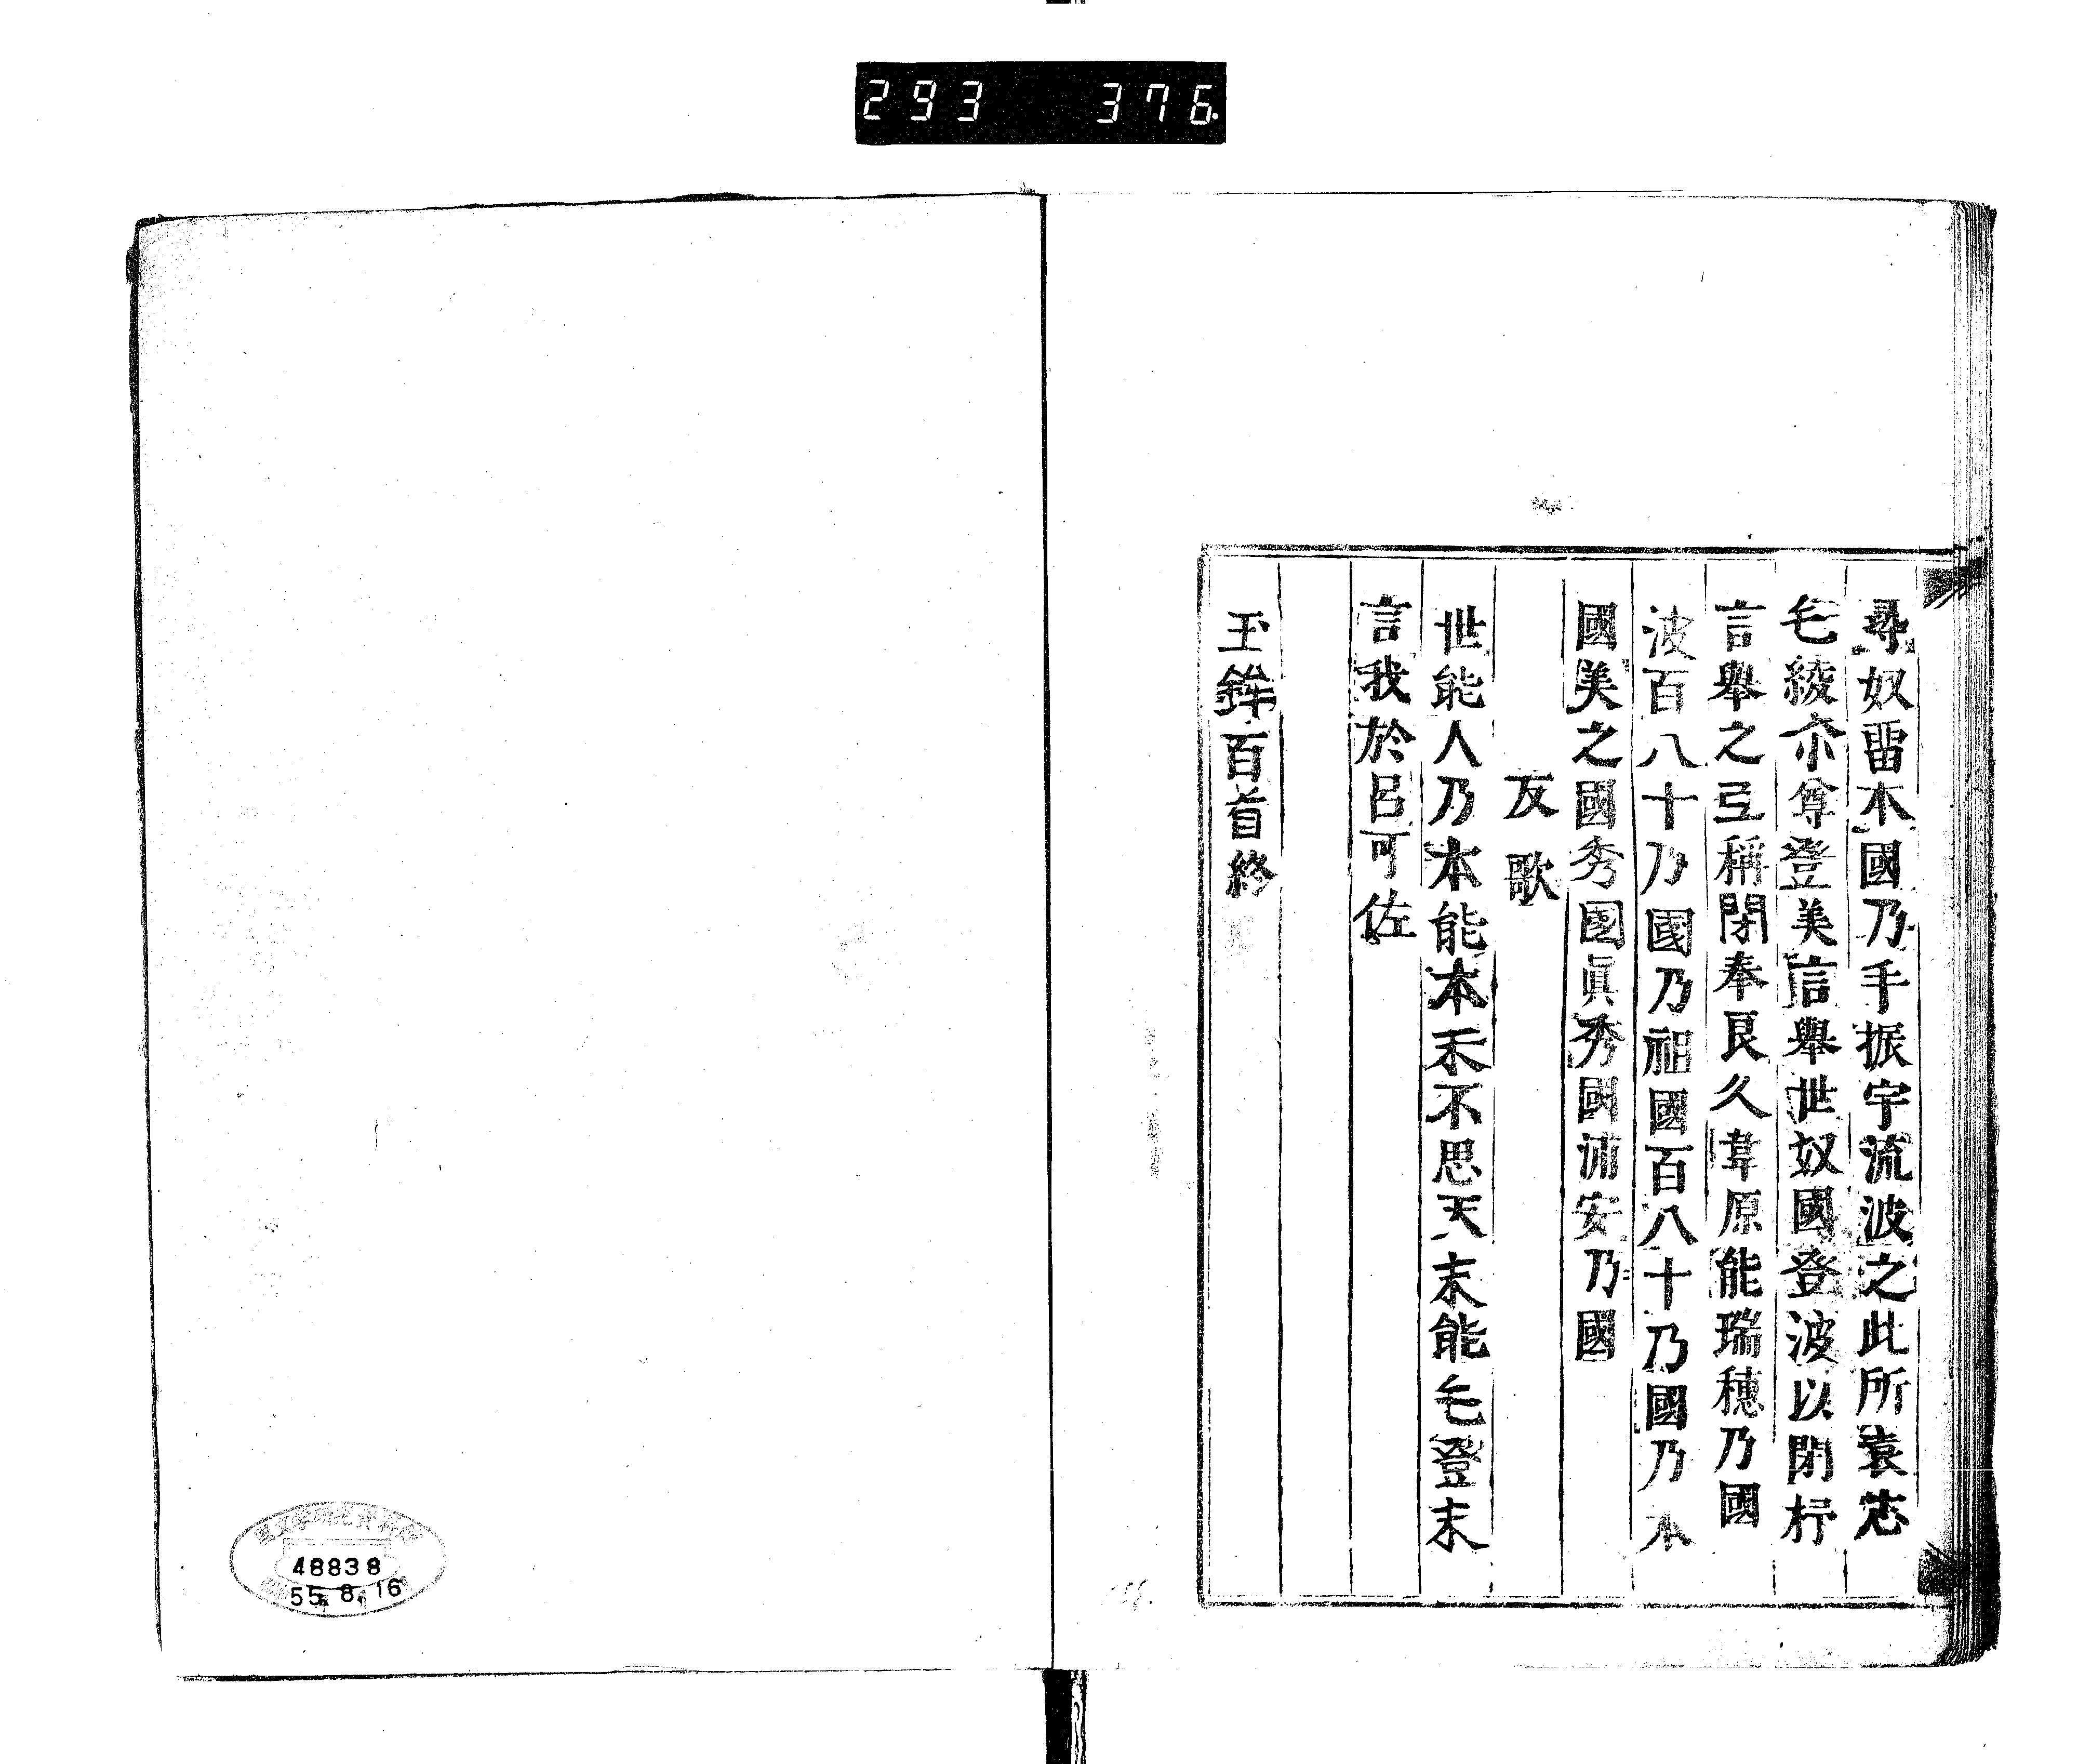 293 376
尋奴畱木國乃手振宇流波之此所袁志
毛綾尓尊登美言舉世奴國登波以閇杼
言舉之弖稱閇奉良久葦原能瑞穗乃國
波百八十乃國乃祖國百八十乃國乃本
國美之國秀國眞秀國浦安乃國
反歌
世能人乃本能本禾不思天末能毛登末
言我於呂可佐
玉鉾百首終
國文学研究資料館
48838
55. 8. 16